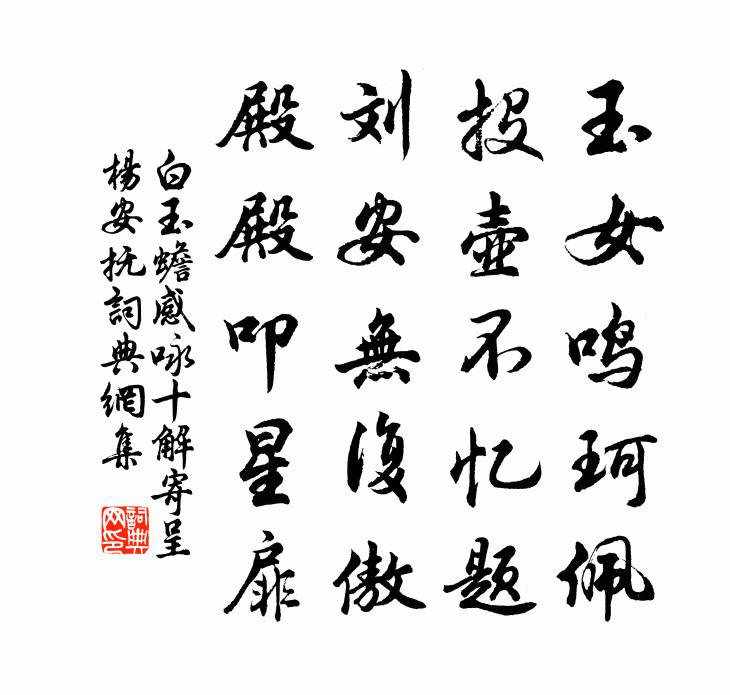 玉女鸣珂佩
投壶不忆题
刘安無復傲
殿殿叩星扉
白玉蟾感咏十解寄呈
楊安抚詞典網集
詞典网印